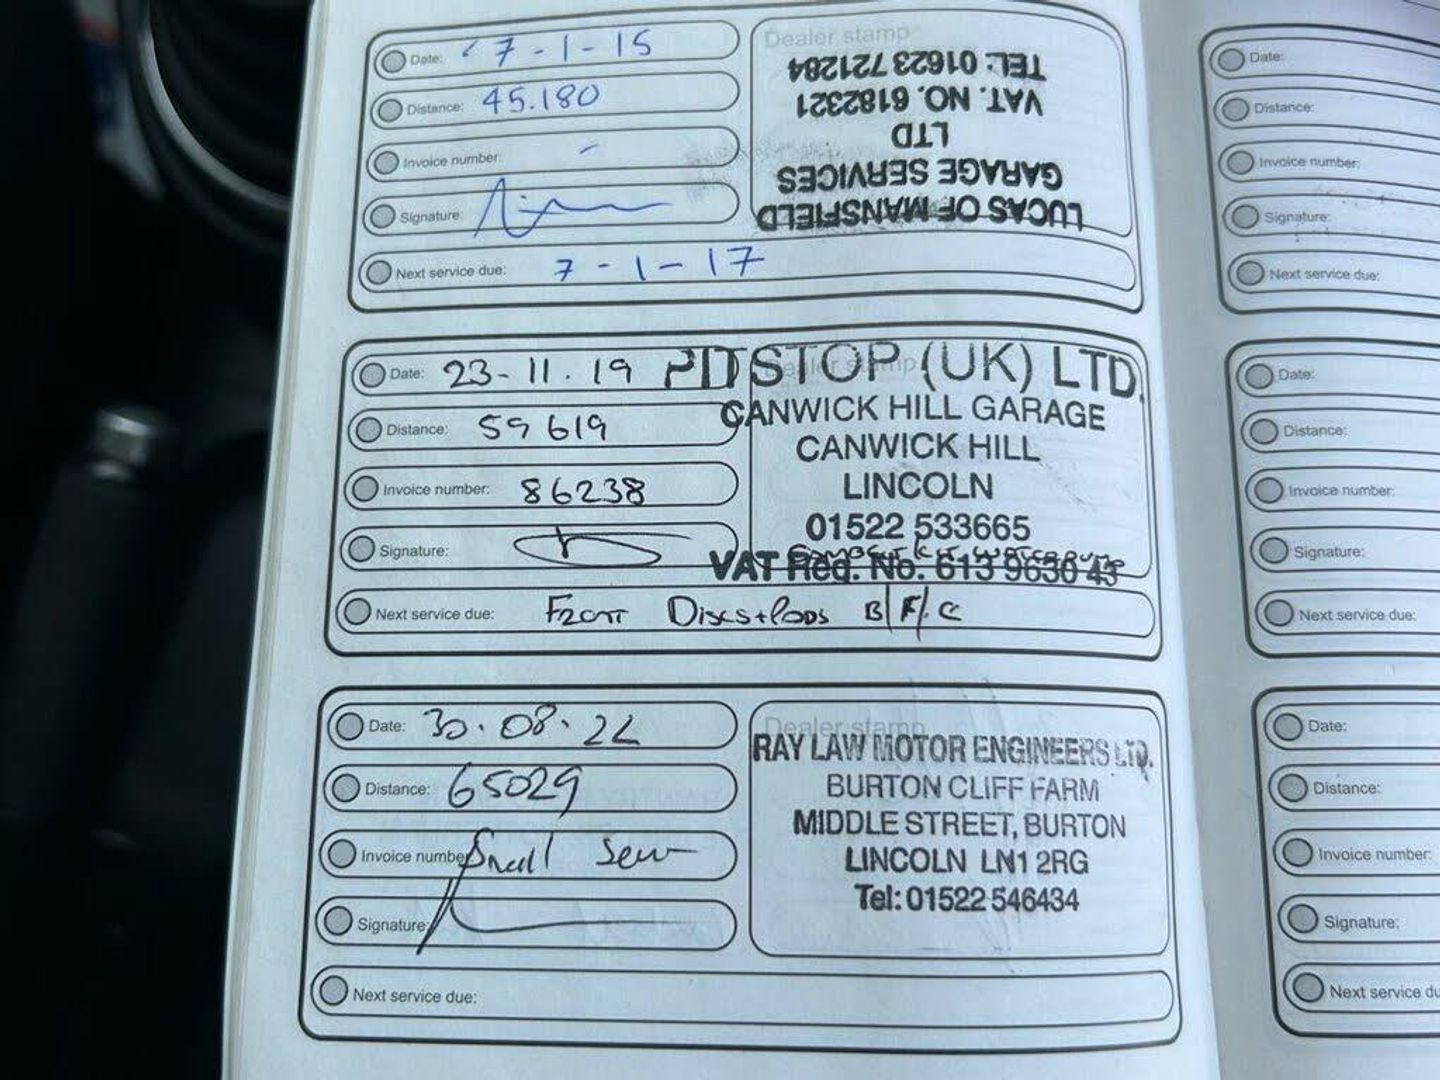 Date: 7-1-15
Distance: 45.180
Invoice number: -
Signature:
Next service due: 7-1-17
Dealer stamp
LUCAS OF MANSFIELD
GARAGE SERVICES
LTD
VAT. NO. 6182321
TEL: 01623 721284
Date: 23-11.19
Distance: 59619
Invoice number: 86238
Signature:
Next service due: Front Discs+Pads B/F/C
Dealer stamp
PITSTOP (UK) LTD.
CANWICK HILL GARAGE
CANWICK HILL
LINCOLN
01522 533665
VAT Reg. No. 613 9630 43
Date: 30.08.22
Distance: 65029
Invoice number: Small Serv
Signature:
Next service due:
Dealer stamp
RAY LAW MOTOR ENGINEERS LTD.
BURTON CLIFF FARM
MIDDLE STREET, BURTON
LINCOLN LN1 2RG
Tel: 01522 546434
Date:
Distance:
Invoice number:
Signature:
Next service due:
Date:
Distance:
Invoice number:
Signature:
Next service due:
Date:
Distance:
Invoice number:
Signature:
Next service du